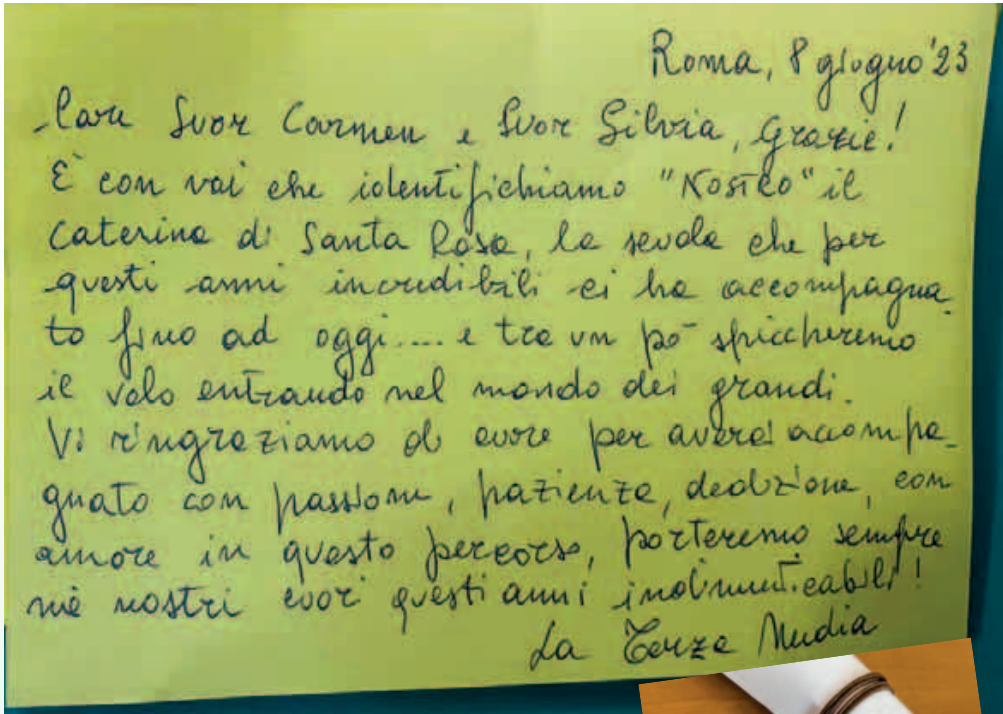 Roma, 8 giugno '23
Care Suor Carmen e Suor Silvia, grazie!
È con voi che identifichiamo "Nostro" il
Caterina di Santa Rosa, la scuola che per
questi anni incredibili ci ha accompagna
to fino ad oggi.... e tra un pò spiccheremo
il volo entrando nel mondo dei grandi.
Vi ringraziamo di cuore per averci accompa_
gnato con passione, pazienza, dedizione, con
amore in questo percorso, porteremo sempre
nei nostri cuori questi anni indimenticabili!
La Terza Media